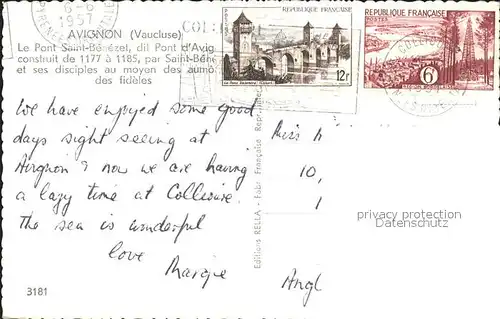 6-6
1957
AVIGNON (Vaucluse)
Le Pont Saint-Bénézet, dit Pont d'Avig
construit de 1177 à 1185, par Saint-Béné
et ses disciples au moyen des aumô
des fidèles
RÉPUBLIQUE FRANÇAISE
POSTES
12F
6F
We have enjoyed some good
days sight seeing at
Avignon & now we are having
a lazy time at Collioure.
The sea is wonderful
love
Margie
Miss
10,
1
Angl
Editions RELLA - Fabr. Française Reprod
privacy protection
Statistics are removed.
3181